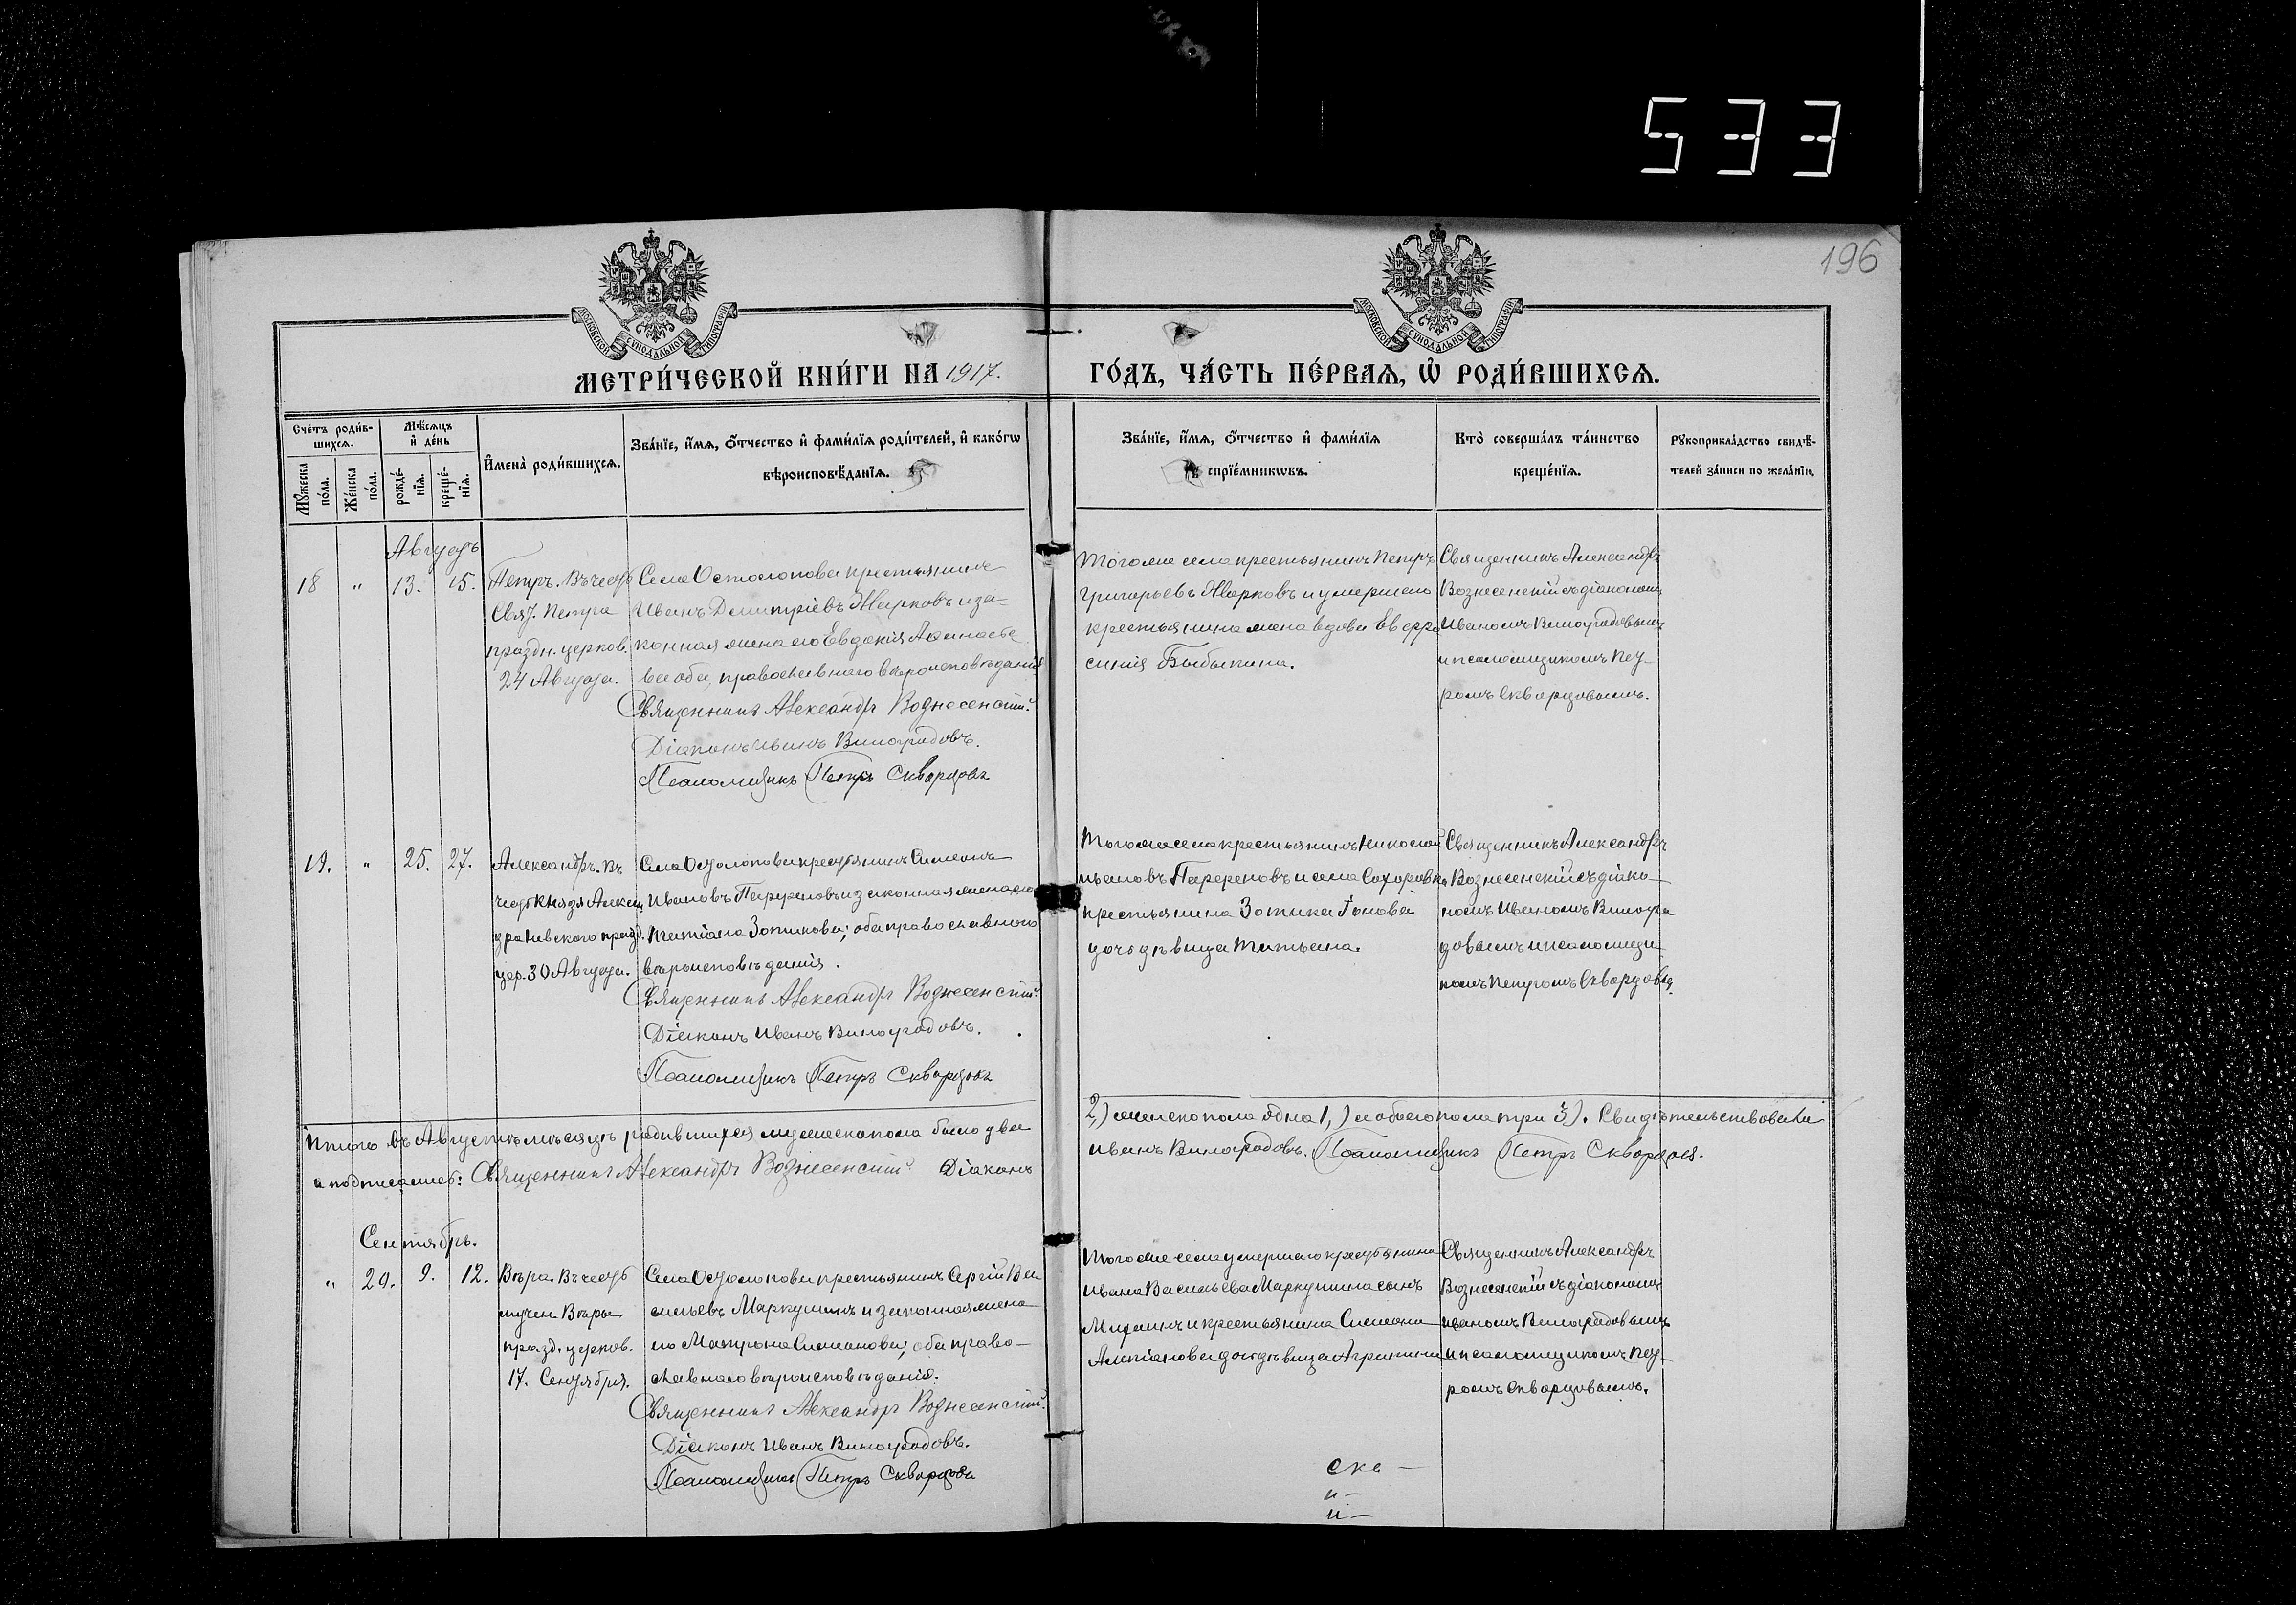 533
196
МОСКОВСКОЙ СѴНОДАЛЬНОЙ ТИПОГРАФІИ
МОСКОВСКОЙ СѴНОДАЛЬНОЙ ТИПОГРАФІИ
МЕТРИ́ЧЕСКОЙ КНИ́ГИ НА 1917.
ГО́ДЪ, ЧА́СТЬ ПЕ́РВАѦ, Ѡ҆ РОДИ́ВШИХСѦ.
Сче́тъ роди́в-
шихсѧ.
Мꙋ́жеска
по́ла.
Же́нска
по́ла.
Мѣ́сѧцъ
и҆ де́нь
рожде́-
нїѧ.
креще́-
нїѧ.
И҆мена̀ роди́вшихсѧ.
Зва́нїе, и҆́мѧ, ѻ҆́тчество и҆ фами́лїѧ роди́телей, и҆ како́гѡ
вѣроисповѣ́данїѧ.
Зва́нїе, и҆́мѧ, ѻ҆́тчество и҆ фами́лїѧ
воспрїе́мникѡвъ.
Кто̀ соверша́лъ та́инство
креще́нїѧ.
Рꙋкоприкла́дство свидѣ́-
телей за́писи по жела́нїю.
Августъ
18 " 13. 15.
Петръ. Въ честь
Свят. Петра
праздн. церков.
24 Августа.
Села Остолопова крестьянинъ
Иванъ Димитріевъ Жарковъ и за-
конная жена его Евдокія Афанасье
ва оба, православнаго вѣроисповѣданія
Священникъ Александръ Вознесенскій
Діаконъ Иванъ Виноградовъ.
Псаломщикъ Петръ Скворцовъ
Тогоже села крестьянинъ Петръ
Григорьевъ Жарковъ и умершаго
крестьянина жена вдова Евфро
синія
Священникъ Александръ
Вознесенскій съ діакономъ
Иваномъ Виноградовымъ
и псаломщикомъ Пет-
ромъ Скворцовымъ.
19. " 25. 27.
Александръ. Въ
честь Князя Алекса
дра Невского празд.
цер. 30 Августа.
Села Остолопова крестьянинъ Симеонъ
Ивановъ и законная жена его
Татіана Зотикова; оба православнаго
вѣроисповѣданія.
Священникъ Александръ Вознесенскій
Діаконъ Иванъ Виноградовъ.
Псаломщикъ Петръ Скворцовъ
Тогоже села крестьянинъ Николай
и села
крестьянина Зотика
дочь дѣвица Татьяна.
Священникъ Александръ
Вознесенскій съ діако-
номъ Иваномъ Виногра
довымъ и псаломщи-
комъ Петромъ Скворцовы.
Итого въ Августѣ мѣсяцѣ родившихся мужеска пола было два
2,) женска пола одна 1,) и обоего пола три 3). Свидѣтельствовали
и подписаемъ: Священникъ Александръ Вознесенскій Діаконъ
Иванъ Виноградовъ. Псаломщикъ Петръ Скворцовъ.
Сентябрь.
" 20. 9. 12.
Вѣра. Въ честь
мучен. Вѣры
празд. церков.
17. Сентября.
Села Остолопова крестьянинъ Сергій Ва
сильевъ Маркушинъ и законная жена
его Матрона Симеонова; оба право-
славнаго вѣроисповѣданія.
Священникъ Александръ Вознесенскій
Діаконъ Иванъ Виноградовъ.
Псаломщикъ Петръ Скворцовъ
Тогоже села умершаго крестьянина
Ивана Васильева Маркушина сынъ
и крестьянина Симеона
дочь дѣвица Агрипина
Священникъ Александръ
Вознесенскій съ діакономъ
Иваномъ Виноградовымъ
и псаломщикомъ Пет-
ромъ Скворцовымъ.
ска-
и-
й-